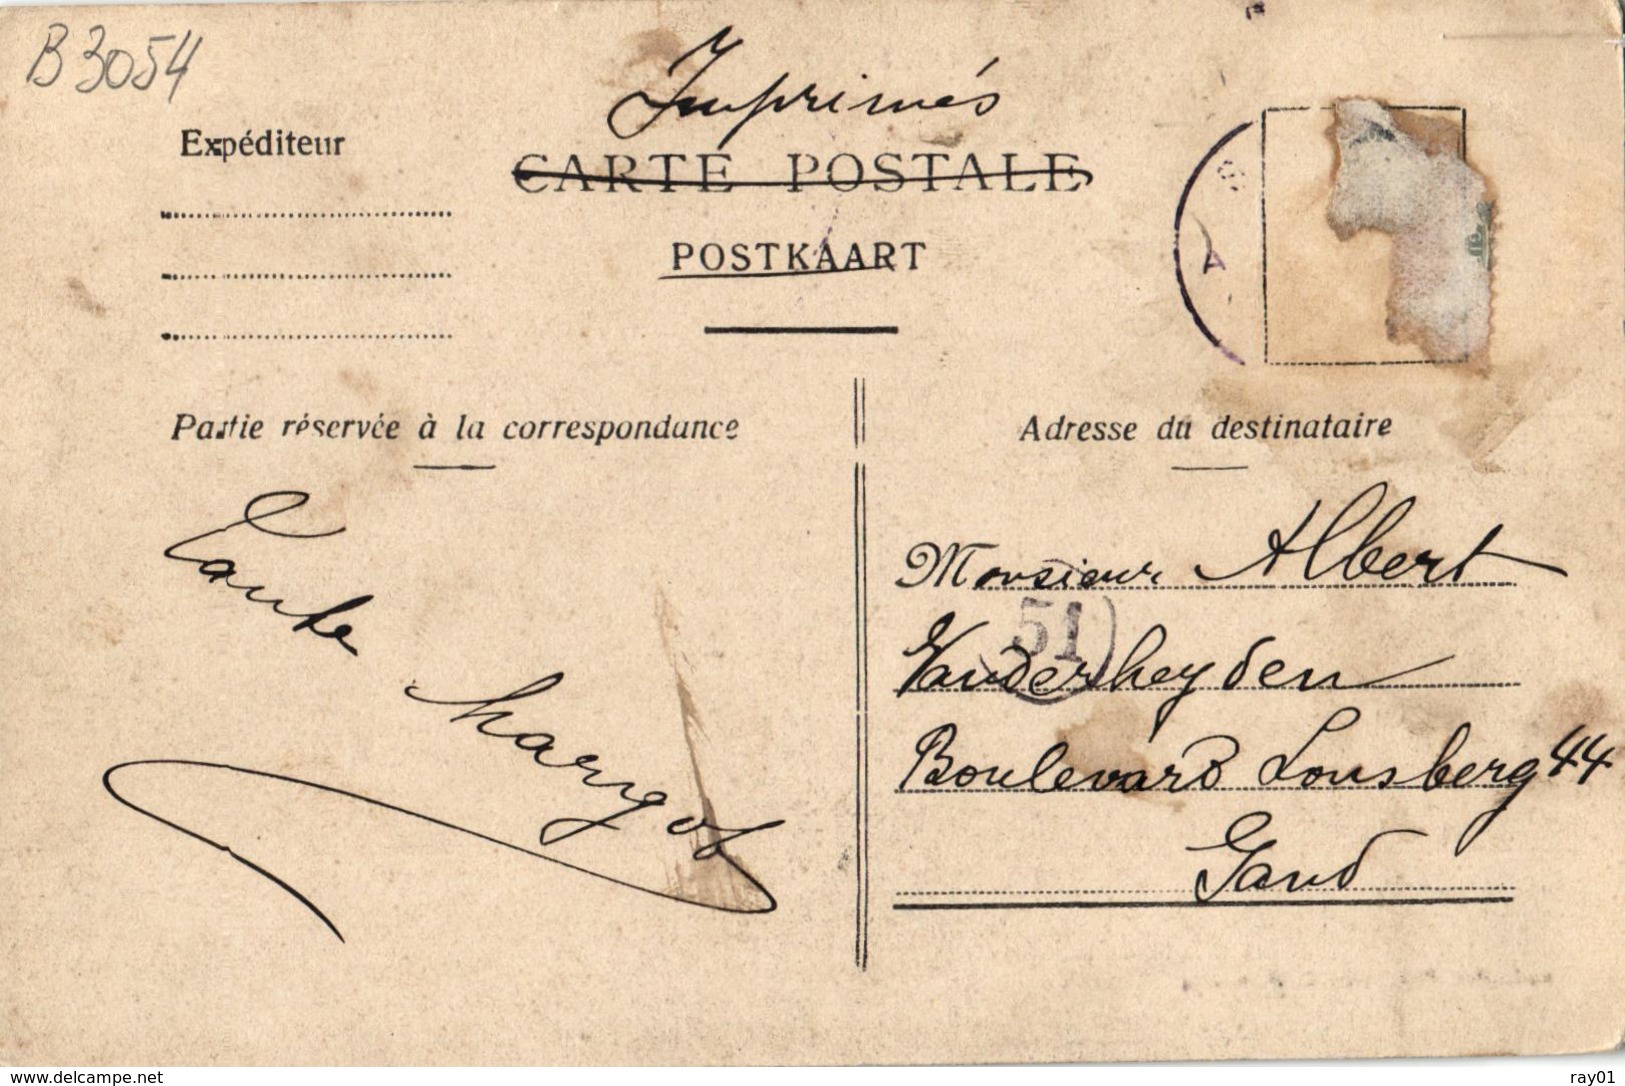 B 3054
Imprimés
Expéditeur
CARTE POSTALE
POSTKAART
A
Partie réservée à la correspondance
Adresse du destinataire
Tante
Margot
Monsieur Albert
51
Vanderheyden
Boulevard Lousberg 44
Gand
www.delcampe.net
ray01